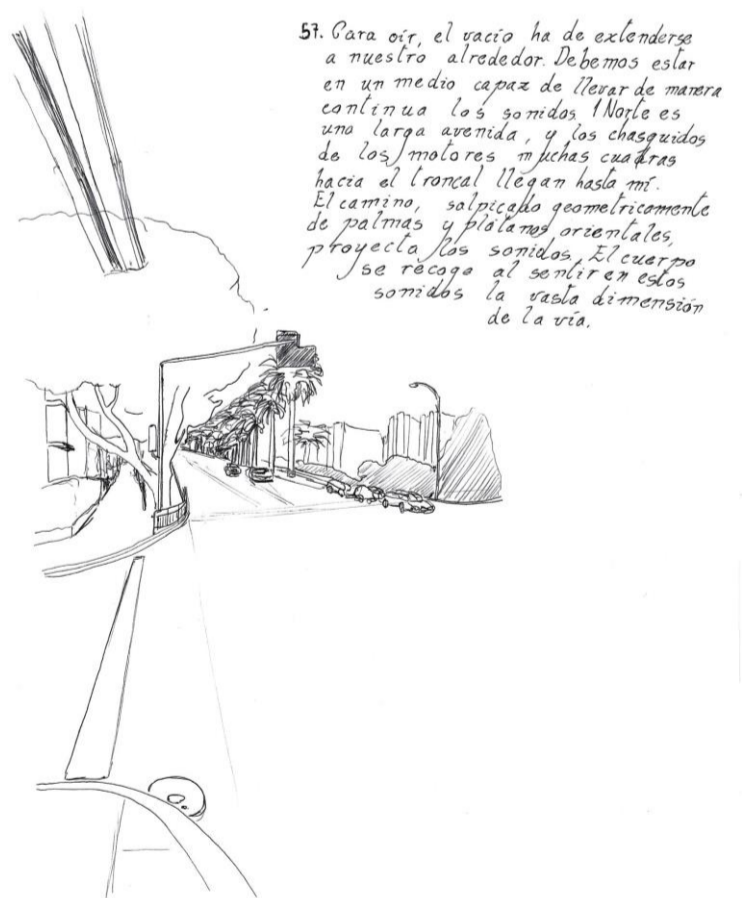 57. Para oír, el vacío ha de extenderse
a nuestro alrededor. Debemos estar
en un medio capaz de llevar de manera
continua los sonidos. 1 Norte es
una larga avenida, y los chasquidos
de los motores muchas cuadras
hacia el troncal llegan hasta mí.
El camino, salpicado geometricamente
de palmas y plátanos orientales,
proyecta los sonidos. El cuerpo
se recoge al sentir en estos
sonidos la vasta dimensión
de la vía.